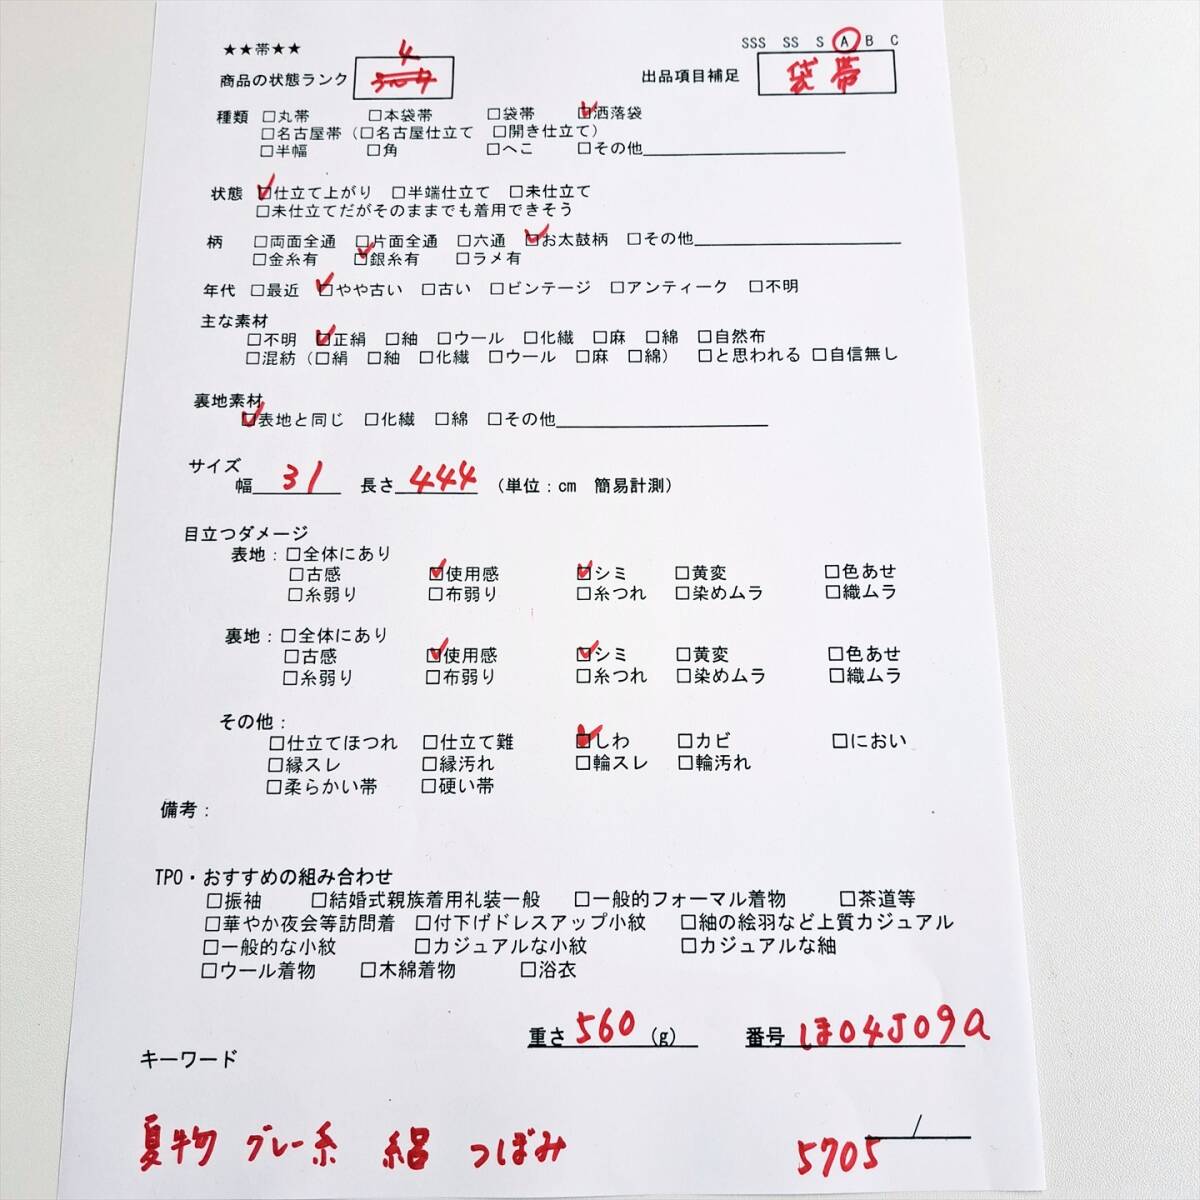 ★★帯★★
SSS SS S A B C
4
商品の状態ランク
出品項目補足 袋帯
種類 □丸帯 □本袋帯 □袋帯 □洒落袋
□名古屋帯（□名古屋仕立て □開き仕立て）
□半幅 □角 □へこ □その他
状態 □仕立て上がり □半端仕立て □未仕立て
□未仕立てだがそのままでも着用できそう
柄 □両面全通 □片面全通 □六通 □お太鼓柄 □その他
□金糸有 □銀糸有 □ラメ有
年代 □最近 □やや古い □古い □ビンテージ □アンティーク □不明
主な素材
□不明 □正絹 □紬 □ウール □化繊 □麻 □綿 □自然布
□混紡（□絹 □紬 □化繊 □ウール □麻 □綿） □と思われる □自信無し
裏地素材
□表地と同じ □化繊 □綿 □その他
サイズ
幅 31 長さ 444 （単位：cm 簡易計測）
目立つダメージ
表地：□全体にあり
□古感 □使用感 □シミ □黄変 □色あせ
□糸弱り □布弱り □糸つれ □染めムラ □織ムラ
裏地：□全体にあり
□古感 □使用感 □シミ □黄変 □色あせ
□糸弱り □布弱り □糸つれ □染めムラ □織ムラ
その他：
□仕立てほつれ □仕立て難 □しわ □カビ □におい
□縁スレ □縁汚れ □輪スレ □輪汚れ
□柔らかい帯 □硬い帯
備考：
TPO・おすすめの組み合わせ
□振袖 □結婚式親族着用礼装一般 □一般的フォーマル着物 □茶道等
□華やか夜会等訪問着 □付下げドレスアップ小紋 □紬の絵羽など上質カジュアル
□一般的な小紋 □カジュアルな小紋 □カジュアルな紬
□ウール着物 □木綿着物 □浴衣
重さ 560 (g) 番号 しほ04J09a
キーワード
夏物 グレー系 絽 つぼみ
/
5705